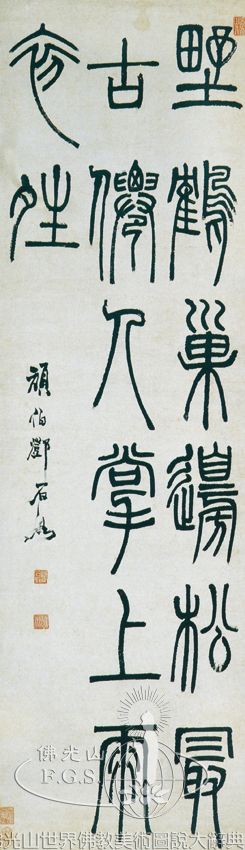 野鶴巢邊松最
古僊人掌上雨
初夝
頑伯鄧石如
佛光山
F.G.S.
光山世界佛教美術圖說大辭典